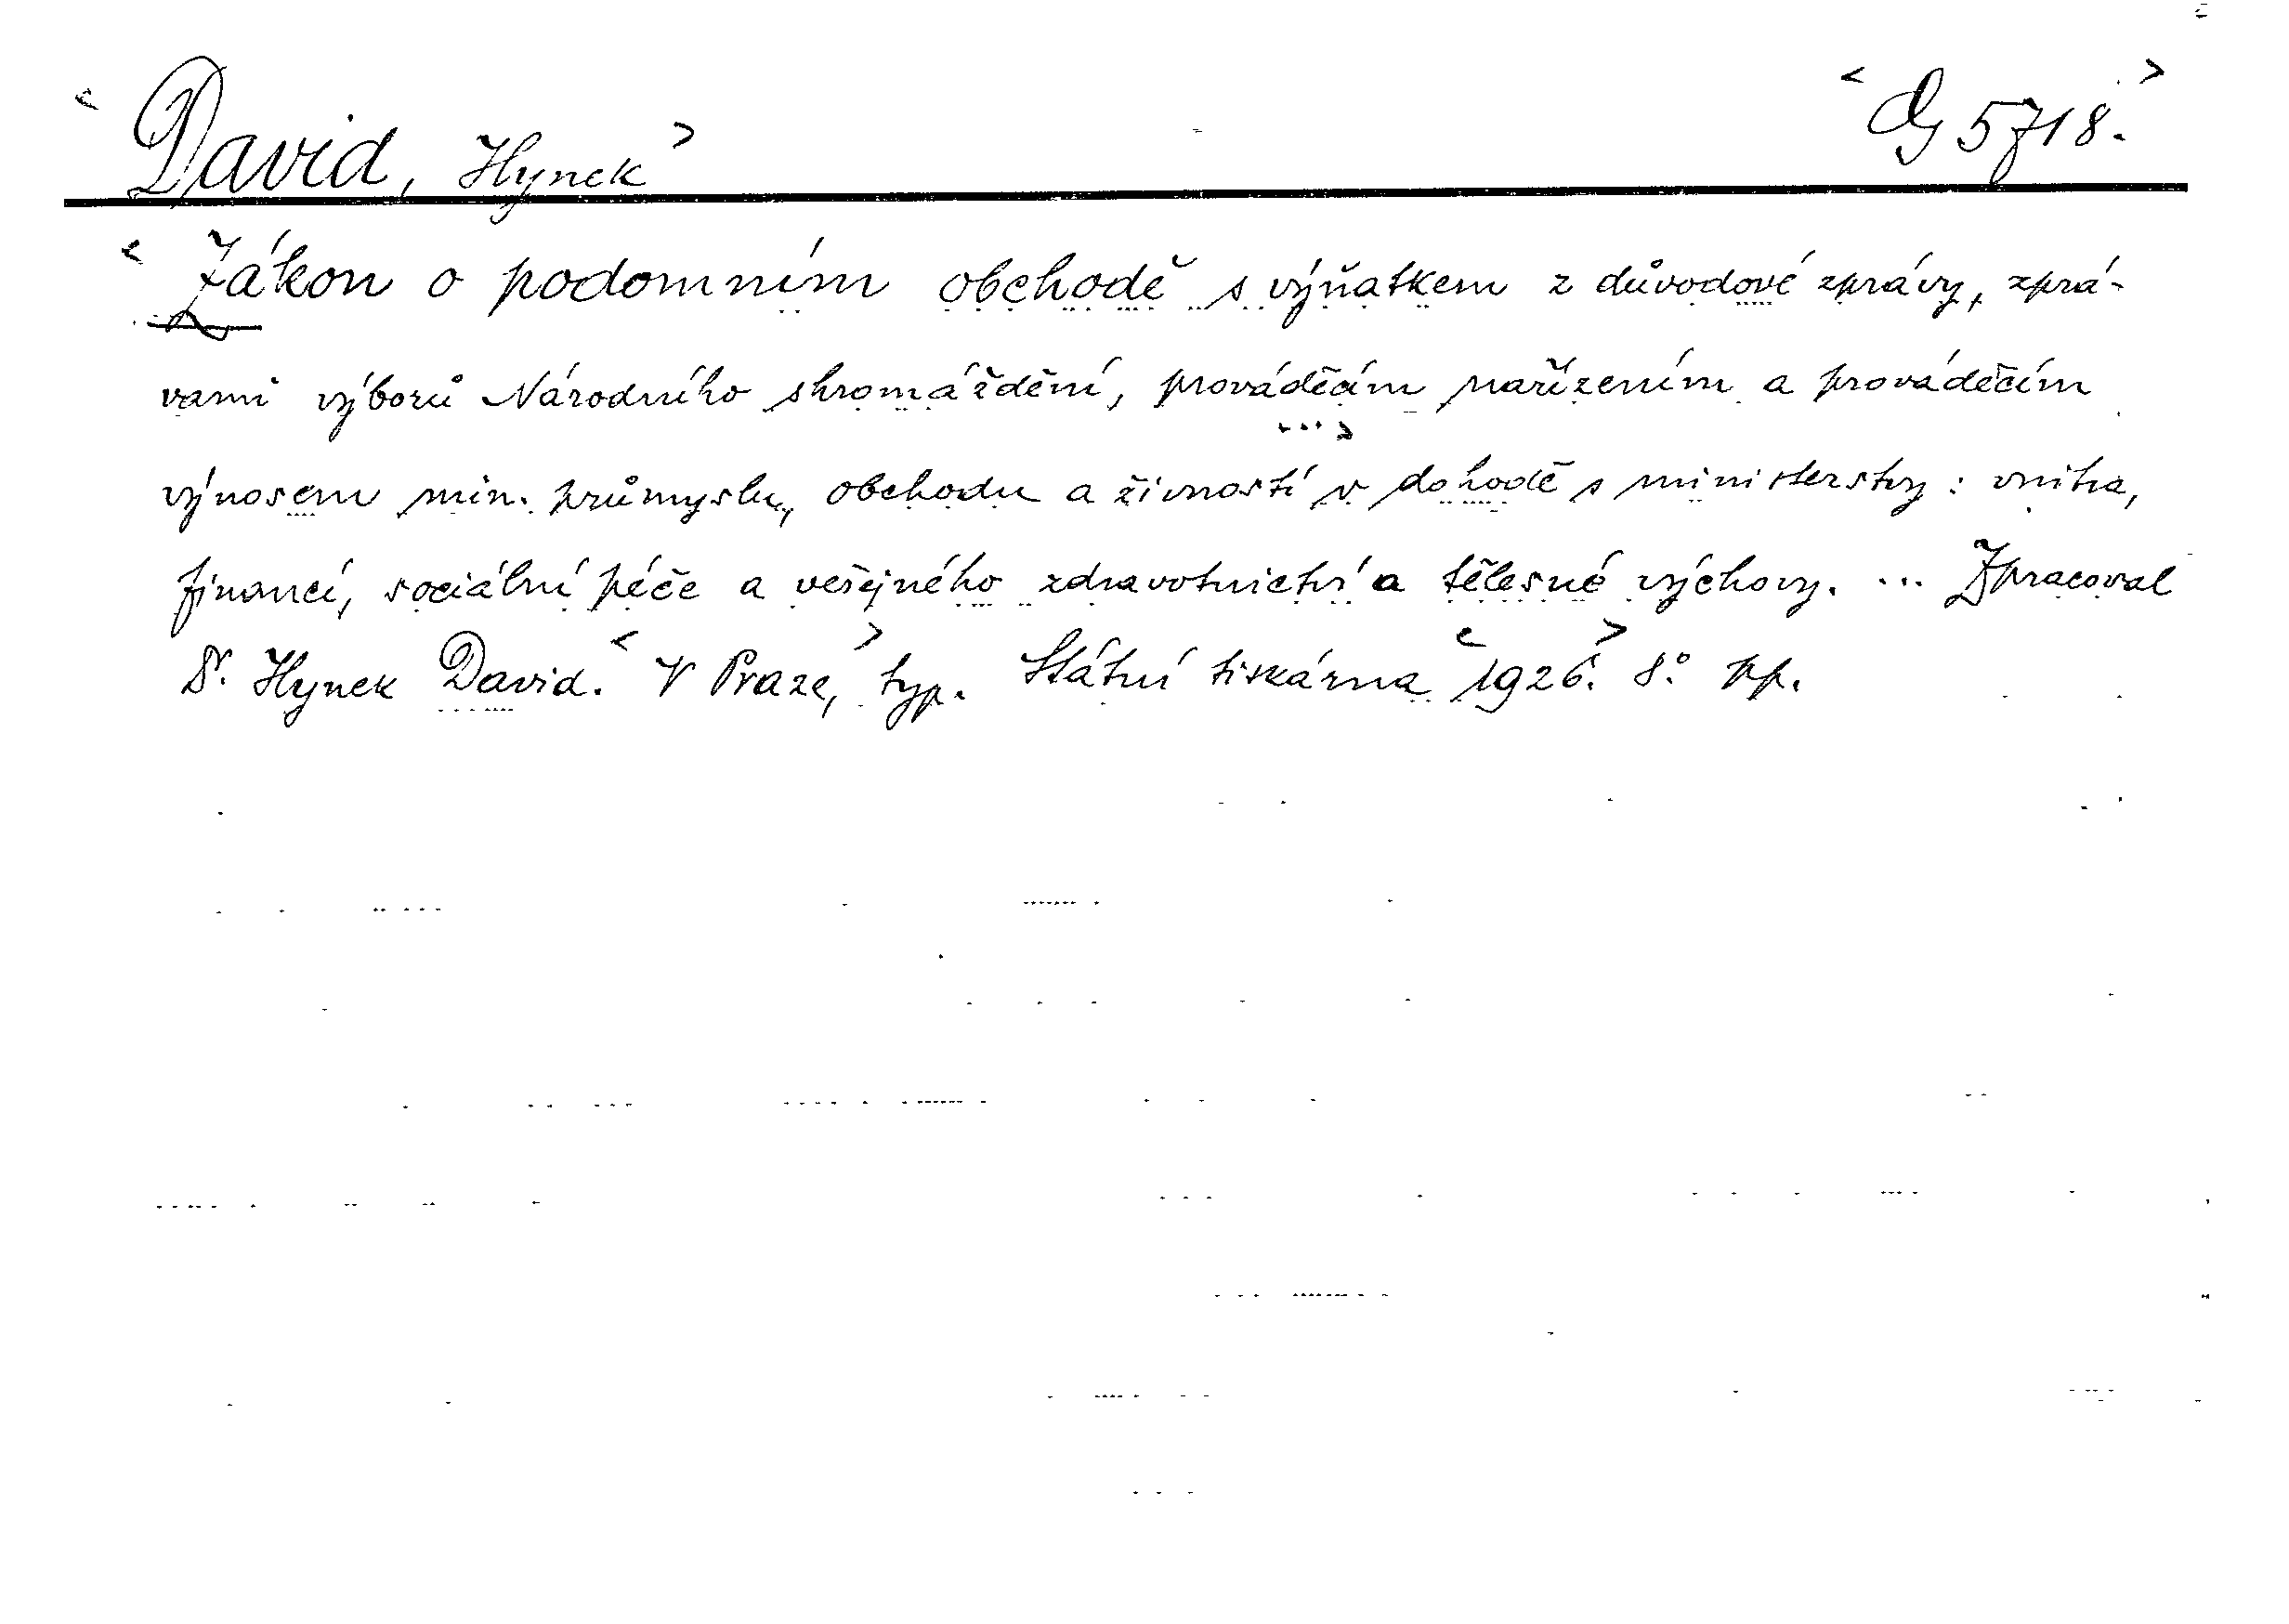 <David, Hynek> <Dg 5718.>
<Zákon o podomním obchodě s výňatkem z důvodové zprávy, zprá-
vami výborů Národního shromáždění, prováděcím nařízením a prováděcím
...>
výnosem min. průmyslu, obchodu a živností v dohodě s ministerstvy: vnitra,
financí, sociální péče a veřejného zdravotnictví a tělesné výchovy. ... Zpracoval
Dr. Hynek David. <V Praze,> typ. Státní tiskárna <1926.> 8° pp.